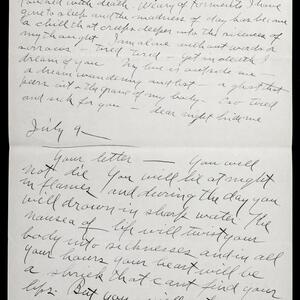 touched with death. Weary of torments I have
gone to sleep and the madness of day has become
a chill that creeps deeper into the niceness of
my thought. I am alone without words or
sorrows — tired tired — yet in death I
dream of you. My love is outside me —
a dream wandering and lost — a ghost that
peers out the grave of my body. I so tired
and sick for you — dear night hide me
July 9 —
Your letter — You will
not die. You will lie at night
in flames and during the day you
will drown in sharp water. The
nausea of life will twist your
body into sicknesses and in all
your hours your heart will be
a shriek that cant find your
lips. But you will